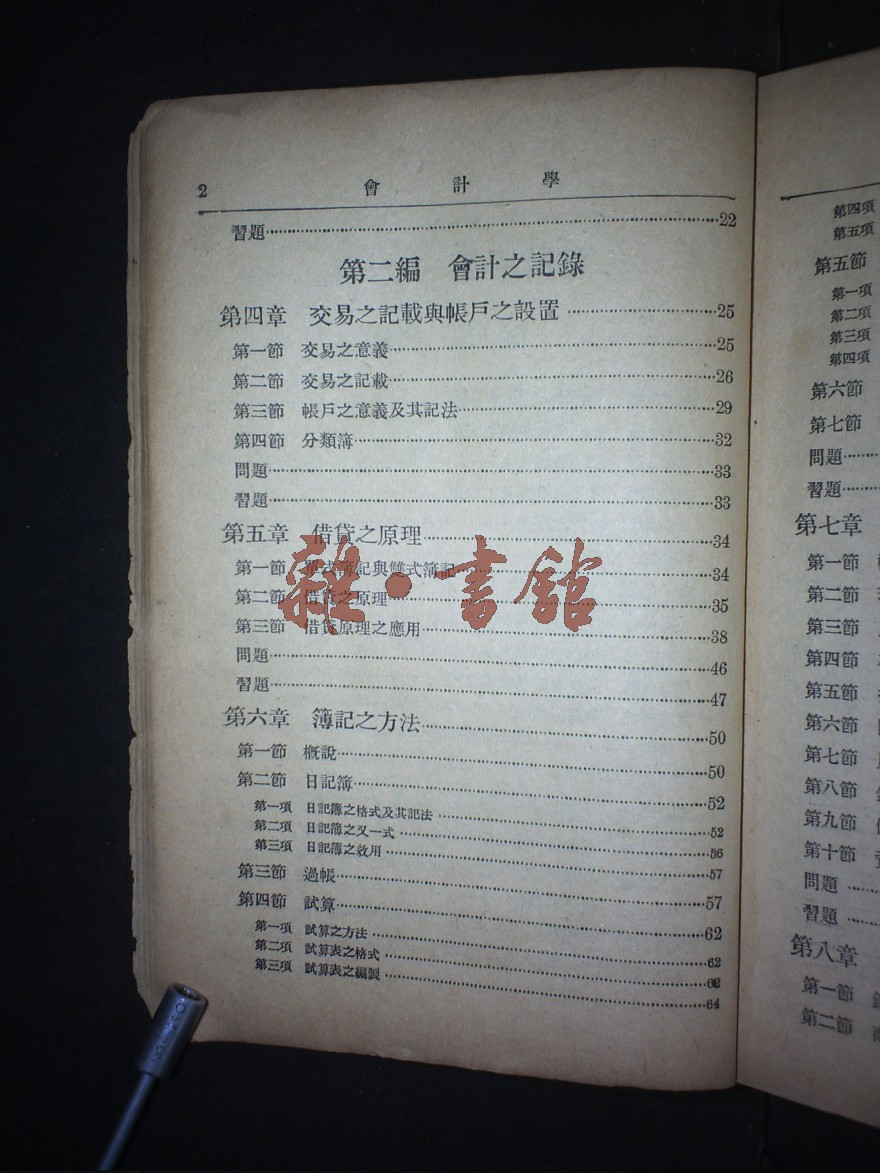 2 會計學
習題……22
第二編 會計之記錄
第四章 交易之記載與帳戶之設置……25
第一節 交易之意義……25
第二節 交易之記載……26
第三節 帳戶之意義及其記法……29
第四節 分類簿……32
問題……33
習題……33
第五章 借貸之原理……34
第一節 單式簿記與雙式簿記……34
第二節 借貸之原理……35
第三節 借貸原理之應用……38
問題……46
習題……47
第六章 簿記之方法……50
第一節 概說……50
第二節 日記簿……52
第一項 日記簿之格式及其記法……52
第二項 日記簿之又一式……56
第三項 日記簿之效用……57
第三節 過帳……57
第四節 試算……62
第一項 試算之方法……62
第二項 試算表之格式……62
第三項 試算表之編製……64
雜·書館
第四項
第五項
第五節
第一項
第二項
第三項
第四項
第六節
第七節
問題……
習題……
第七章
第一節
第二節
第三節
第四節
第五節
第六節
第七節
第八節
第九節
第十節
問題……
習題……
第八章
第一節
第二節